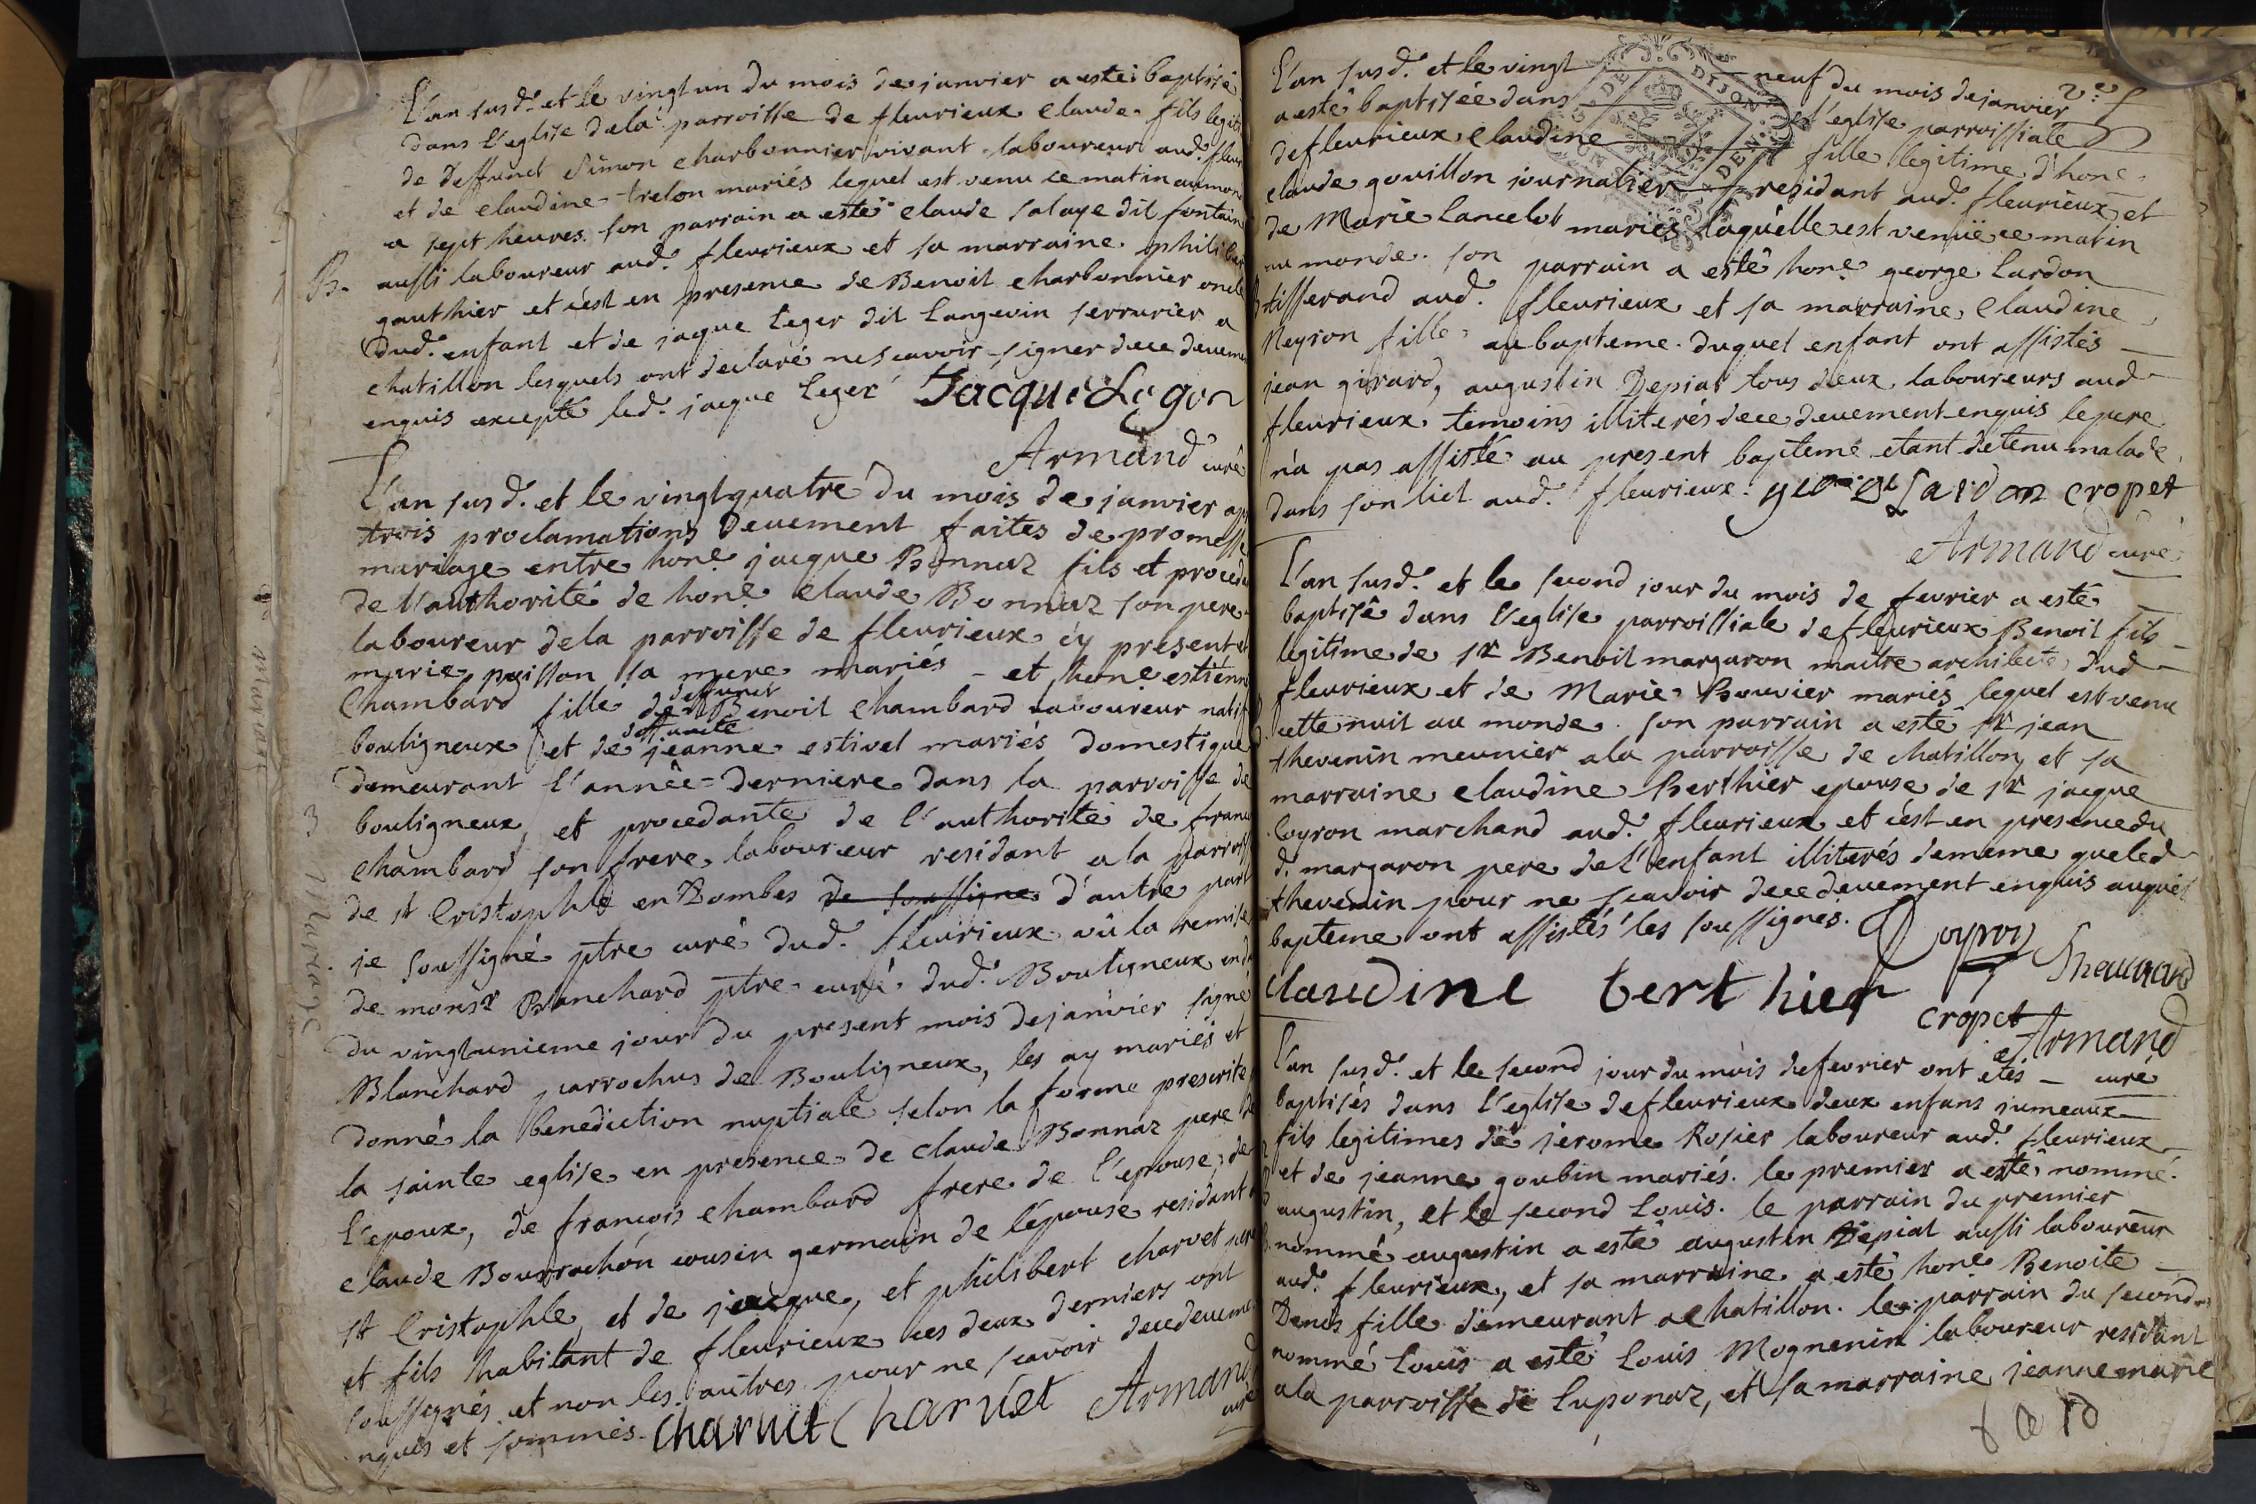 L'an susd. et le vingt un du mois de janvier a esté baptisé
dans l'eglise dela parroisse de fleurieux claude fils legit
de deffunct Simon charbonnier vivant laboureur aud. fleur
et de claudine trelon mariés lequel est venu ce matin au mon
a sept heures. son parrain a esté claude salaye dit fontain
B. aussi laboureur aud. fleurieux et sa marraine philiber
gauthier et c'est en presence de Benoit charbonnier oncle
dud. enfant et de jaque leger dit langevin serrurier a
chatillon lesquels ont declaré ne scavoir signer de ce deueme
enquis excepté led. jacque leger Jacque Leger
Armand curé
L'an susd. et le vingt quatre du mois de janvier apr
trois proclamations Deuement faites de promesse
mariage entre hone jacque Bonnaz fils et proceda
de l'authorité de hone claude Bonnaz son pere
laboureur dela parroisse de fleurieux cy present et
marie poisson sa mere mariés - et hone estienn
Chambard fille de deffunct Benoit Chambard laboureur natif
bouligneux et de deffuncte jeanne estivel mariés domestique
demeurant l'année derniere dans la parroisse de
bouligneux, et procedante de l'authorité de franc
chambard son frere laboureur residant a la parroiss
de st Cristophle en Dombes de soussigne d'autre part
3 Mariage
je soussigné ptre curé dud. fleurieux vû la remise
de monsr Blanchard ptre curé dud. Bouligneux en d
du vingtunieme jour du present mois de janvier signé
Blanchard parrochus de Bouligneux, les ay mariés et
donné la benediction nuptiale selon la forme prescrite
la sainte eglise en presence de claude Bonnaz pere de
l'epoux, de françois chambard frere de l'epouse, de
claude Bourrachon cousin germain de l'épouse residant
st Cristophle, et de jacque, et philibert charvet pere
et fils habitant de fleurieux ces deux derniers ont
soussignés et non les autres pour ne scavoir de ce deueme
nquis et sommés. Charvet Charvet Armand
curé
L'an susd. et le vingt neuf du mois de janvier
a esté baptisée dans l'eglise parroissiale
de fleurieux claudine fille legitime d'hone
claude gouillon journalier residant aud. fleurieux et
de Marie lancelot mariés laquelle est venüe ce matin
au monde. son parrain a esté hone george lardon
tisserand aud. fleurieux et sa marraine claudine
Neyron fille au bapteme duquel enfant ont assistés
jean girard, augustin Depiat tous deux laboureurs aud
fleurieux temoins illiterés de ce deuement enquis le pere
n'a pas assisté au present bapteme etant detenu malade
dans son lict aud. fleurieux. george Lardon cropet
Armand curé
L'an susd. et le second jour du mois de fevrier a esté
baptisé dans l'eglise parroissiale de fleurieux Benoit fils
legitime de sr Benoit margaron maitre architecte dud
fleurieux et de Marie Bouvier mariés lequel est venu
cette nuit au monde. son parrain a esté sr jean
thevenin meunier a la parroisse de chatillon, et sa
marraine claudine Berthier epouse de sr jacque
Coyron marchand aud. fleurieux et c'est en presence du
d. margaron pere de l'enfant illiterés de meme que led
thevenin pour ne scavoir de ce deuement enquis auquel
bapteme ont assistés les soussignés. Coyron
claudine berthier
cropet Armand
curé
L'an susd. et le second jour du mois de fevrier ont etés
baptisés dans l'eglise de fleurieux deux enfans jumeaux
fils legitimes de jerome Rosier laboureur aud. fleurieux
et de jeanne goubin mariés. le premier a esté nommé
augustin, et le second Louis. le parrain du premier
nommé augustin a esté augustin Depiat aussi laboureur
aud. fleurieux, et sa marraine a esté hone Benoite
Denis fille demeurant a chatillon. le parrain du second
nommé Louis a esté Louis Mognenin laboureur residant
a la parroisse de luponaz, et sa marraine jeanne marie